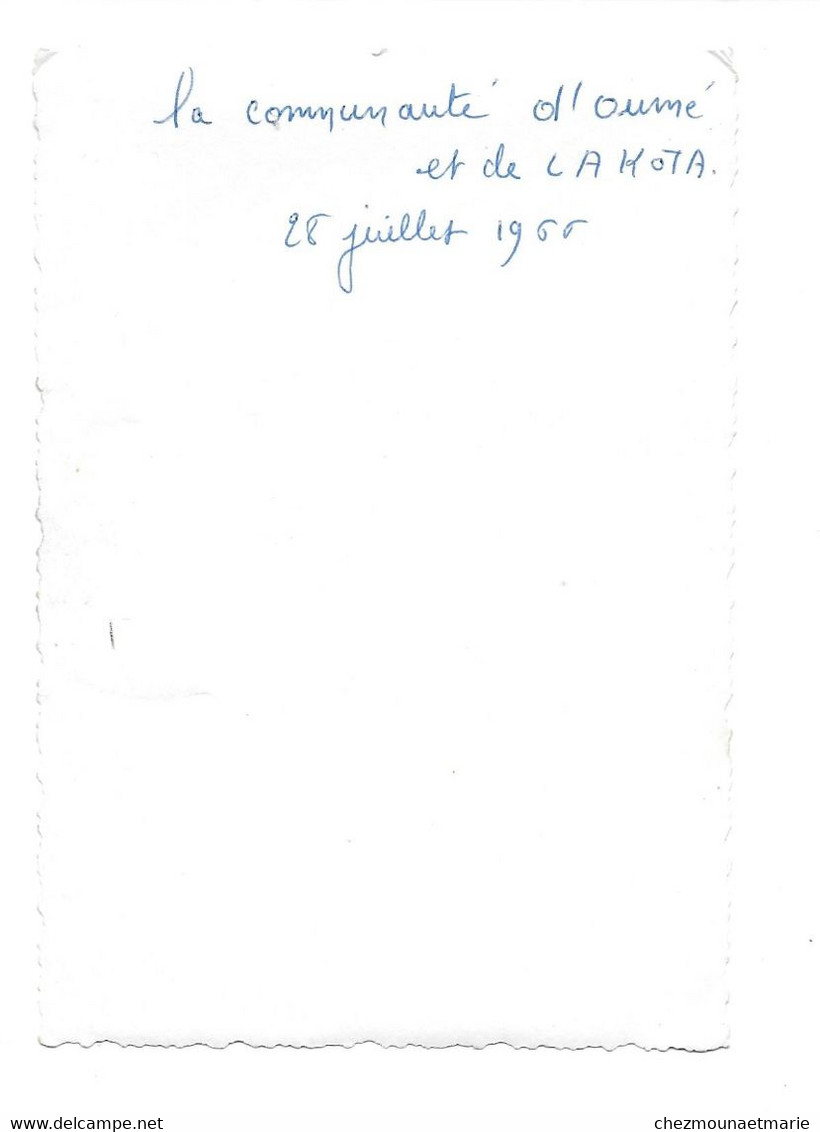 la communauté d'oumé
et de LAKOTA.
28 juillet 1966
delcampe.net
chezmounaetmarie